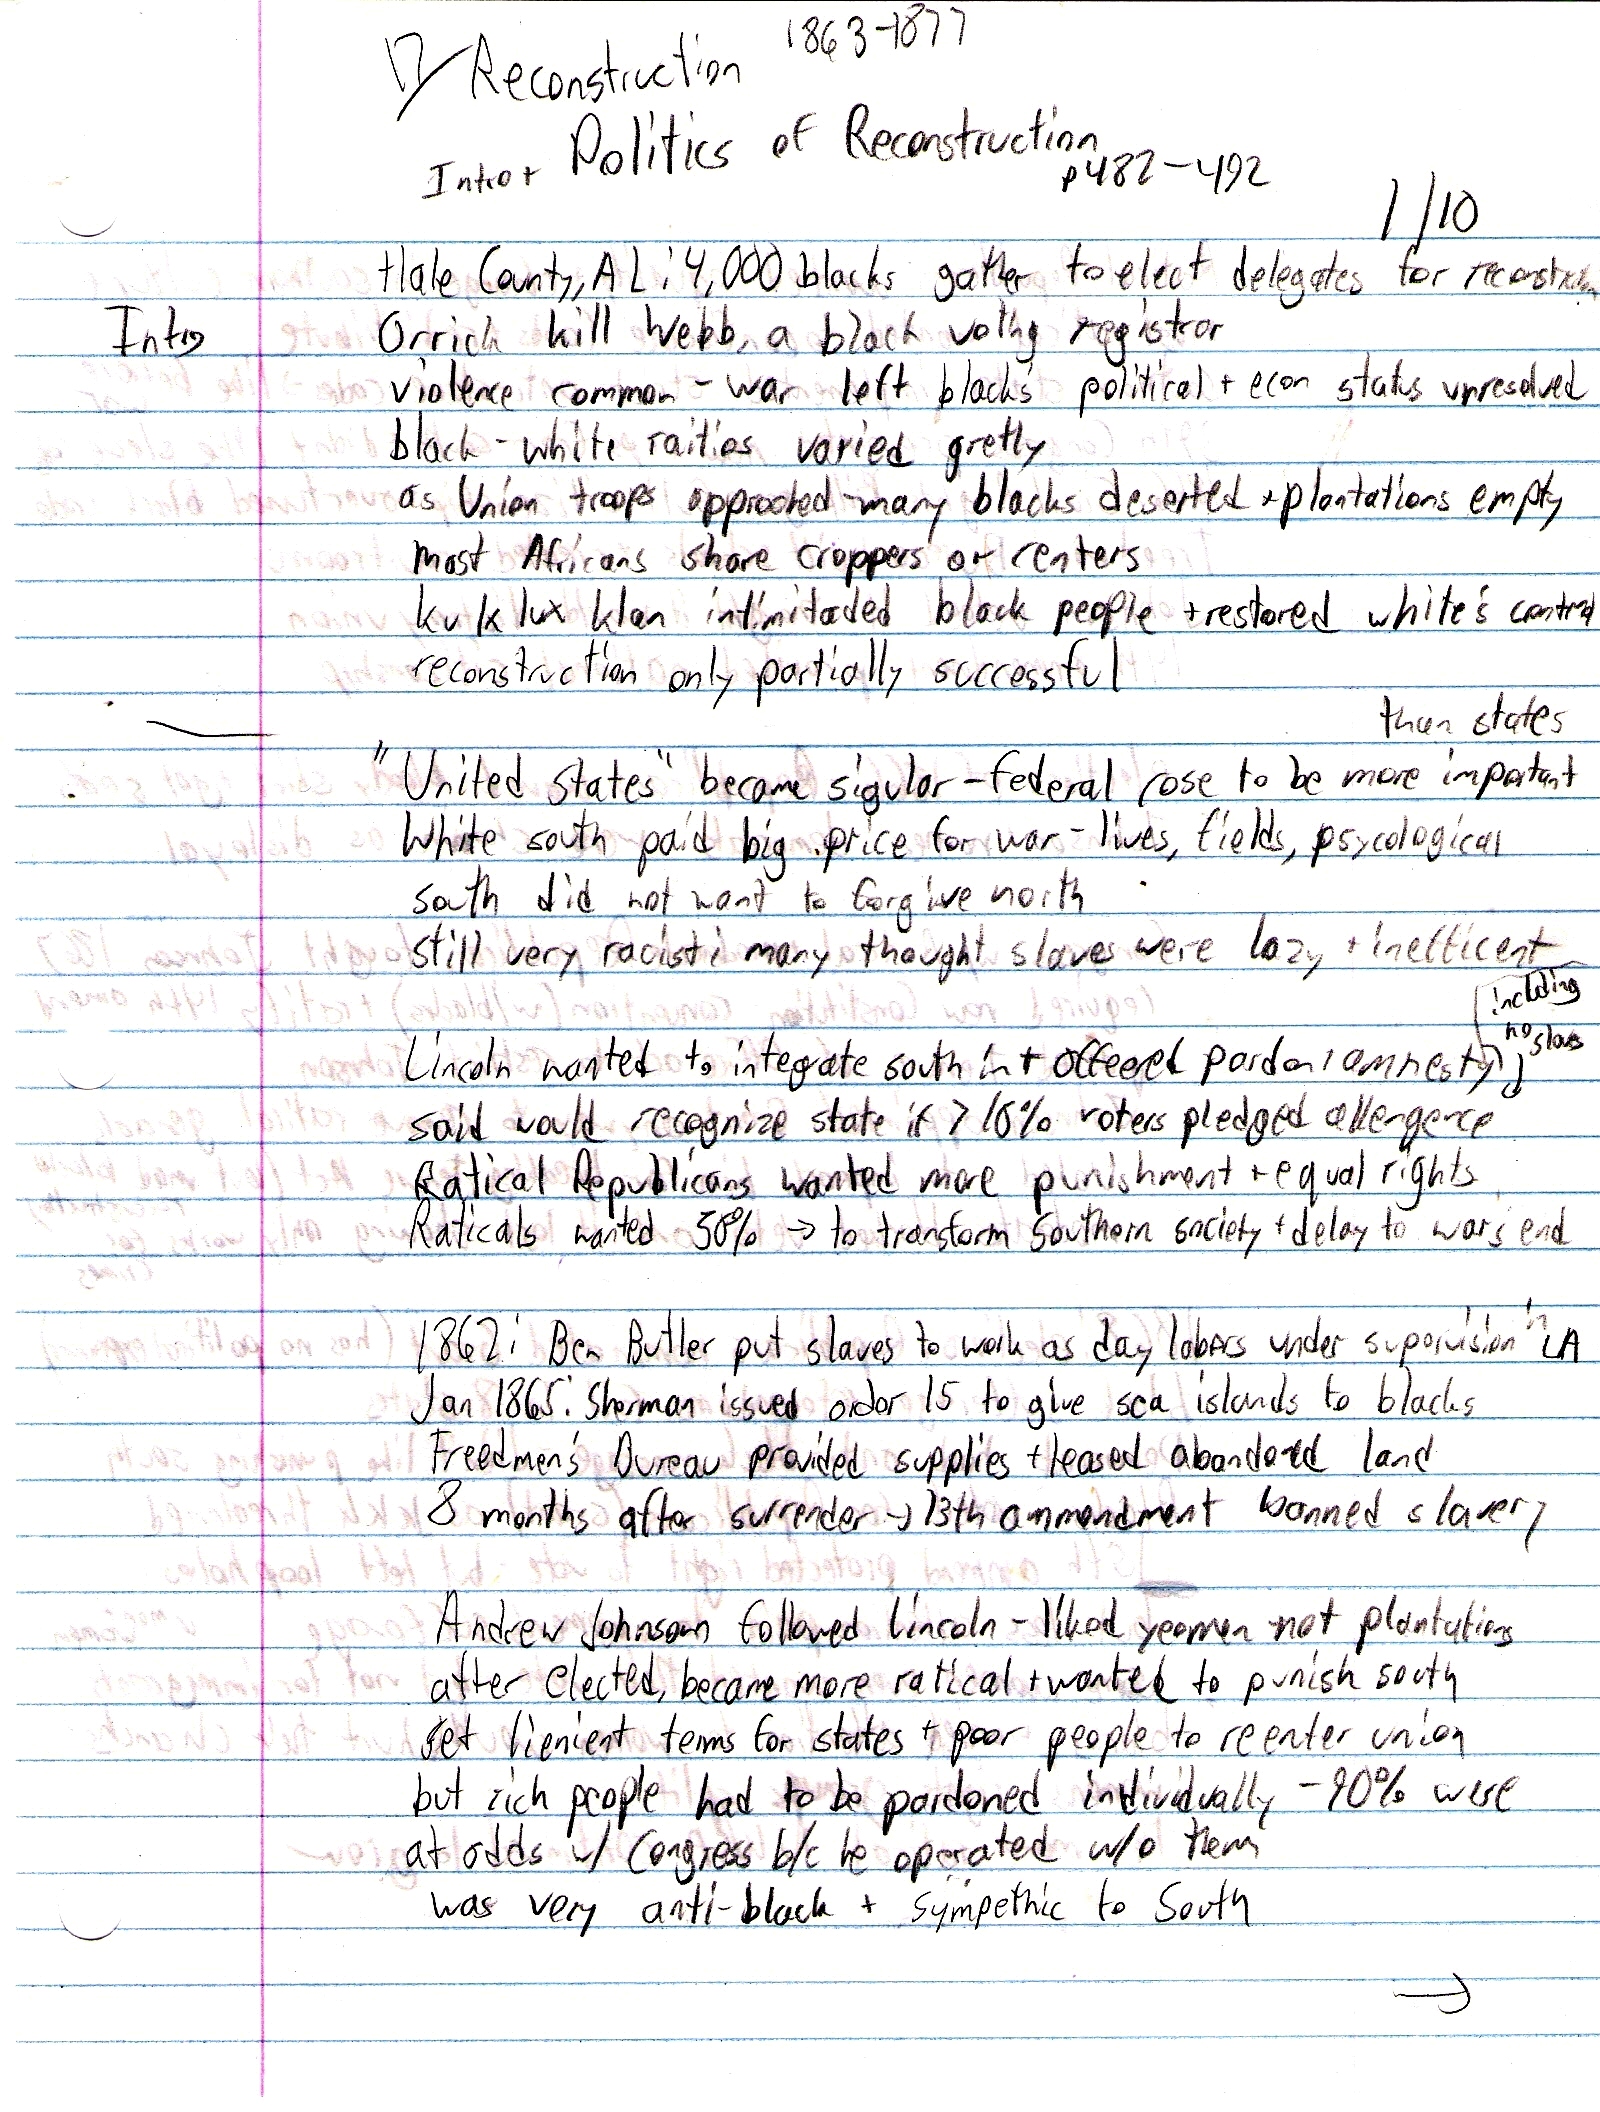 17/ Reconstruction 1863-1877
Intro + Politics of Reconstruction
p482-492
1/10
Hale County, AL: 4,000 blacks gather to elect delegates for reconstruction
Intro
Orrick kill Webb, a black voting registrar
violence common - war left blacks political + econ status unresolved
black-white raitios varied gretly
as Union troops approched many blacks deserted + plantations empty
most Africans share croppers or renters
ku klux klan intimitaded black people + restored white's control
reconstruction only partially successful
than states
"United States" became sigular - federal rose to be more important
White south paid big price for war - lives, fields, psycological
south did not want to forgive north
still very racist; many thought slaves were lazy + inefficent
including
no slaves
Lincoln wanted to integrate south in + offered pardon, amnesty
said would recognize state if > 10% voters pledged allergence
Ratical Republicans wanted more punishment + equal rights
Raticals wanted 50% → to transform southern society + delay to wars end
1862: Ben Butler put slaves to work as day labors under supervision in LA
Jan 1865: Sherman issued order 15 to give sea islands to blacks
Freedmen's Bureau provided supplies + leased abandored land
8 months after surrender → 13th ammendment banned slavery
Andrew Johnson followed Lincoln - liked yeomen not plantations
after elected, became more ratical + wanted to punish south
set lienient terms for states + poor people to reenter union
but rich people had to be pardoned individually - 90% were
at odds w/ Congress b/c he operated w/o them
was very anti-black + sympethic to South
→